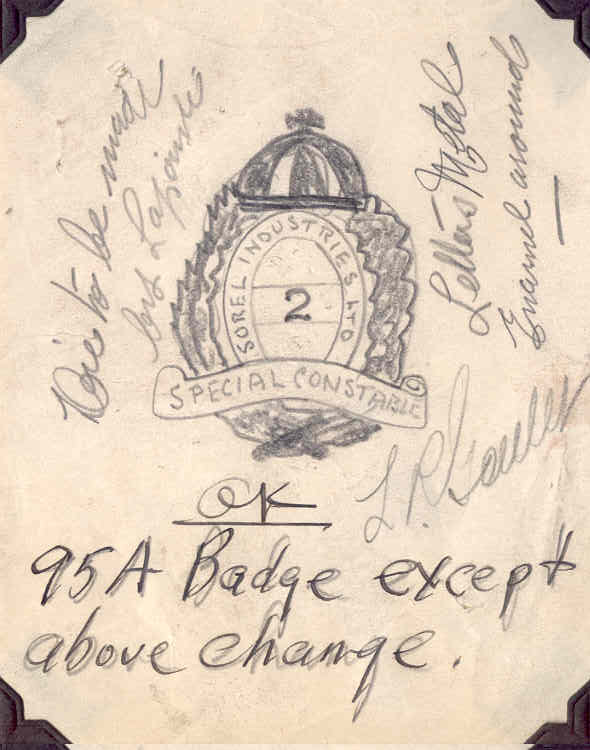 Die to be made
by Lapointe
Letters Metal
Enamel around
SOREL INDUSTRIES LTD
2
SPECIAL CONSTABLE
L.R.
OK
95A Badge except
above change.